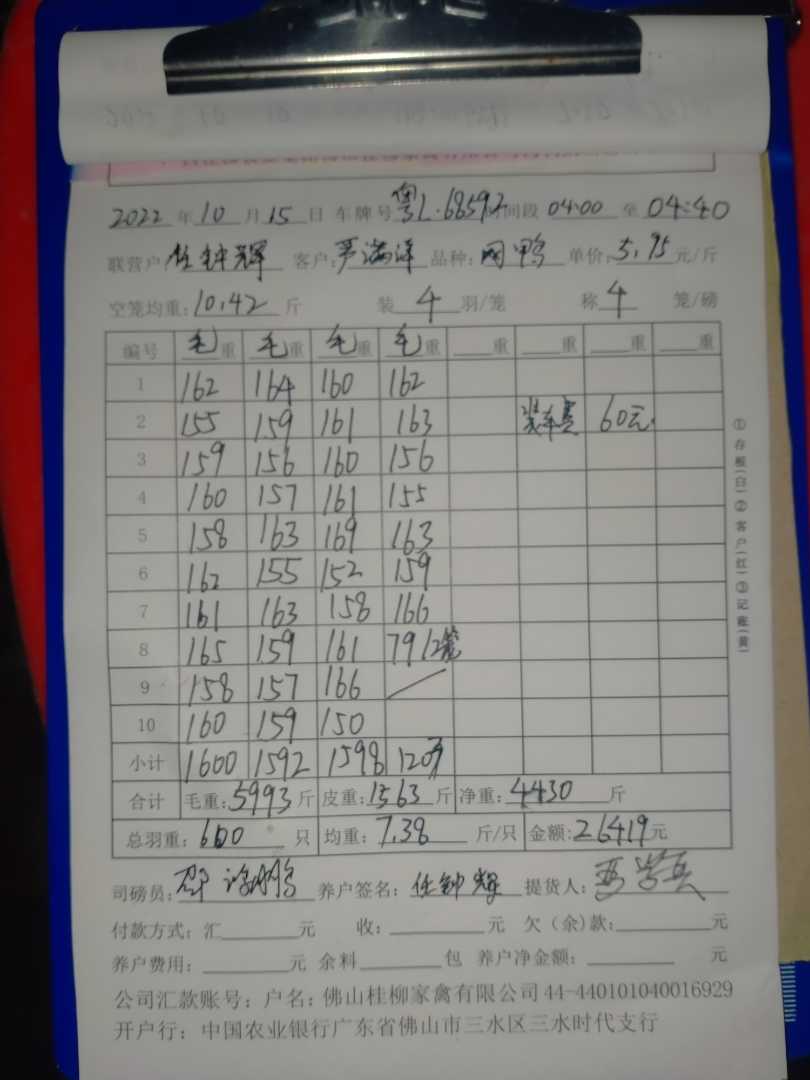 2022年10月15日 车牌号粤L·68592 时间段 04:00 至 04:40
联营户:任钟辉 客户:严满洋 品种: 鸭 单价:5.95元/斤
空笼均重:10.42斤 装4羽/笼 称4笼/磅
编号 毛重 毛重 毛重 毛重 重 重 重 重
1 162 164 160 162
2 155 159 161 163 装车费 60元
3 159 156 160 156
4 160 157 161 155
5 158 163 169 163
6 162 155 152 159
7 161 163 158 166
8 165 159 161 79 1/2笼
9 158 157 166
10 160 159 150
小计 1600 1592 1598 1203
合计 毛重:5993斤 皮重:1563斤 净重:4430斤
总羽重:600只 均重:7.38斤/只 金额:26419元
司磅员: 养户签名:任钟辉 提货人:
付款方式:汇 元 收: 元 欠(余)款: 元
养户费用: 元 余料 包 养户净金额: 元
公司汇款账号:户名:佛山桂柳家禽有限公司 44-440101040016929
开户行:中国农业银行广东省佛山市三水区三水时代支行
①存根(白)②客户(红)③记账(黄)